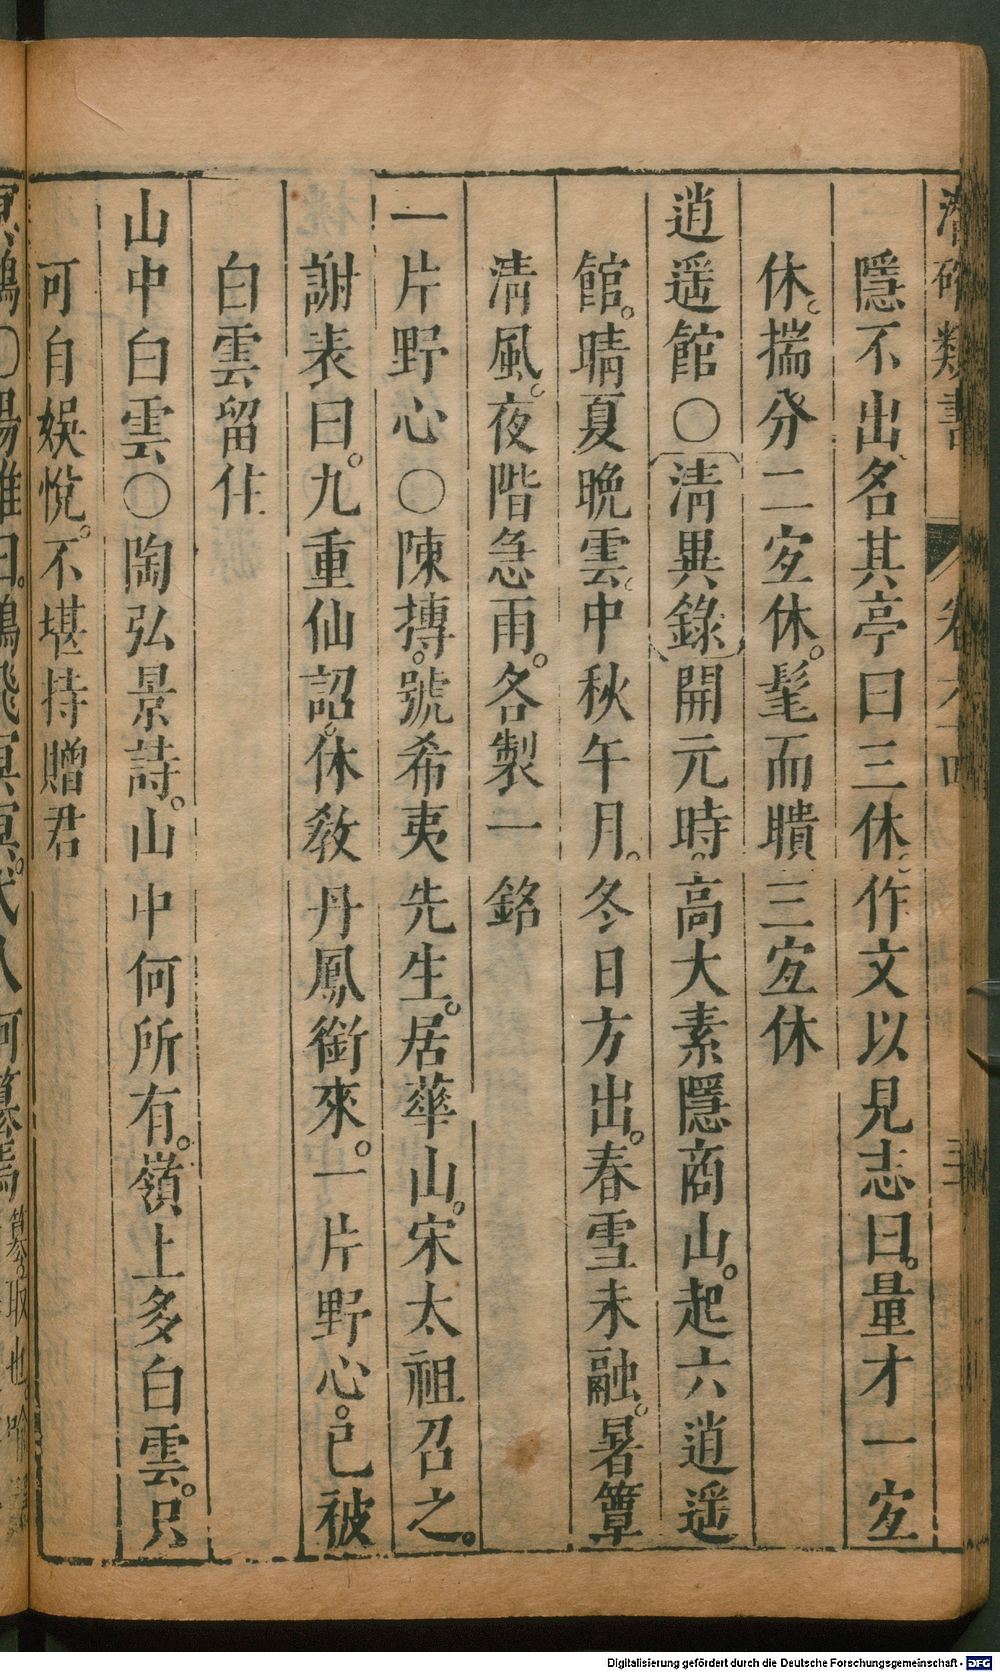 潛確類書 卷六十四
隱不出名其亭曰三休。作文以見志曰。量才一宐
休。揣分二宐休。髦而瞶三宐休
逍遥館〇清異錄開元時。高大素隱商山。起六逍遥
館。晴夏晚雲。中秋午月。冬日方出。春雪未融。暑簟
清風。夜階急雨。各製一銘
一片野心〇陳摶。號希夷先生。居華山。宋太祖召之。
謝表曰。九重仙詔。休教丹鳳銜來。一片野心。已被
白雲留住
山中白雲〇陶弘景詩。山中何所有。嶺上多白雲。只
可自娱悅。不堪持贈君
冥鴻〇揚雄曰。鴻飛冥冥。弋人何篡焉 篡。取也
Digitalisierung gefördert durch die Deutsche Forschungsgemeinschaft - DFG